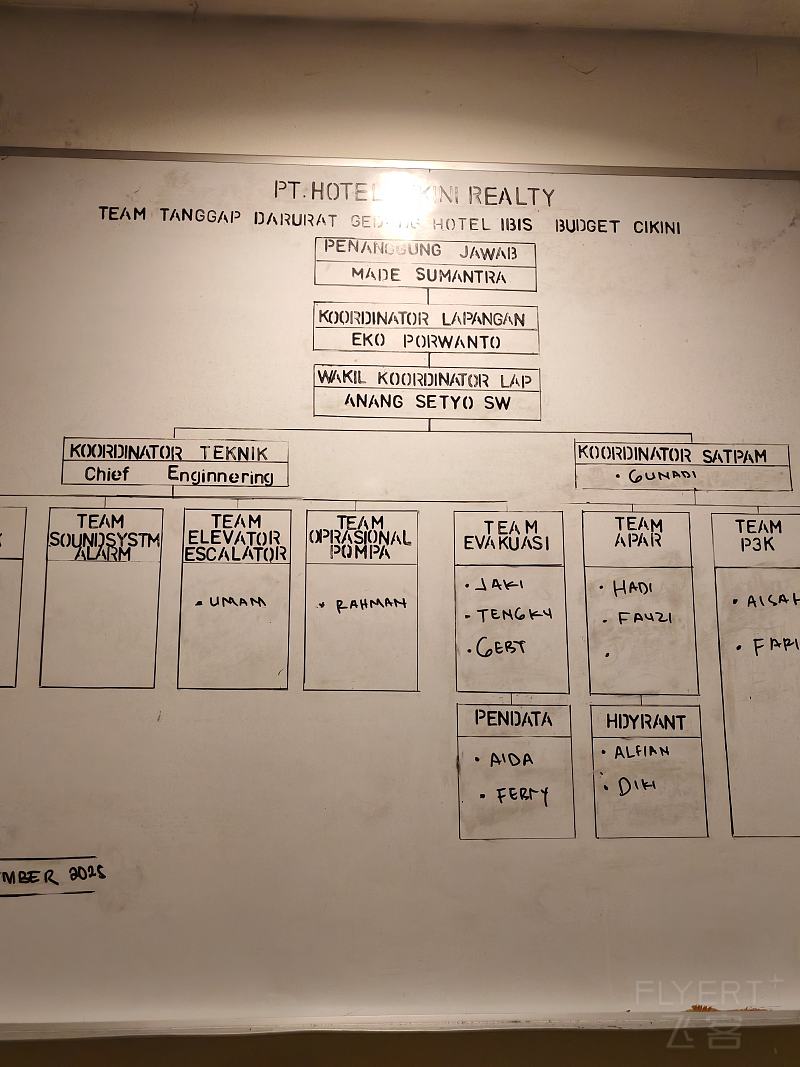 PT. HOTEL CIKINI REALTY
TEAM TANGGAP DARURAT GEDUNG HOTEL IBIS BUDGET CIKINI
PENANGGUNG JAWAB
MADE SUMANTRA
KOORDINATOR LAPANGAN
EKO PORWANTO
WAKIL KOORDINATOR LAP
ANANG SETYO SW
KOORDINATOR TEKNIK
Chief Enginnering
KOORDINATOR SATPAM
• GUNADI
TEAM
SOUNDSYSTM
ALARM
TEAM
ELEVATOR
ESCALATOR
• UMAM
TEAM
OPRASIONAL
POMPA
• RAHMAN
TEAM
EVAKUASI
• JAKI
• TENGKY
• GEBT
TEAM
APAR
• HADI
• FAUZI
•
TEAM
P3K
• AISAH
• FARI
PENDATA
• AIDA
• FEBTY
HDYRANT
• ALFIAN
• DIKI
MBER 2025
FLYERT+
飞客